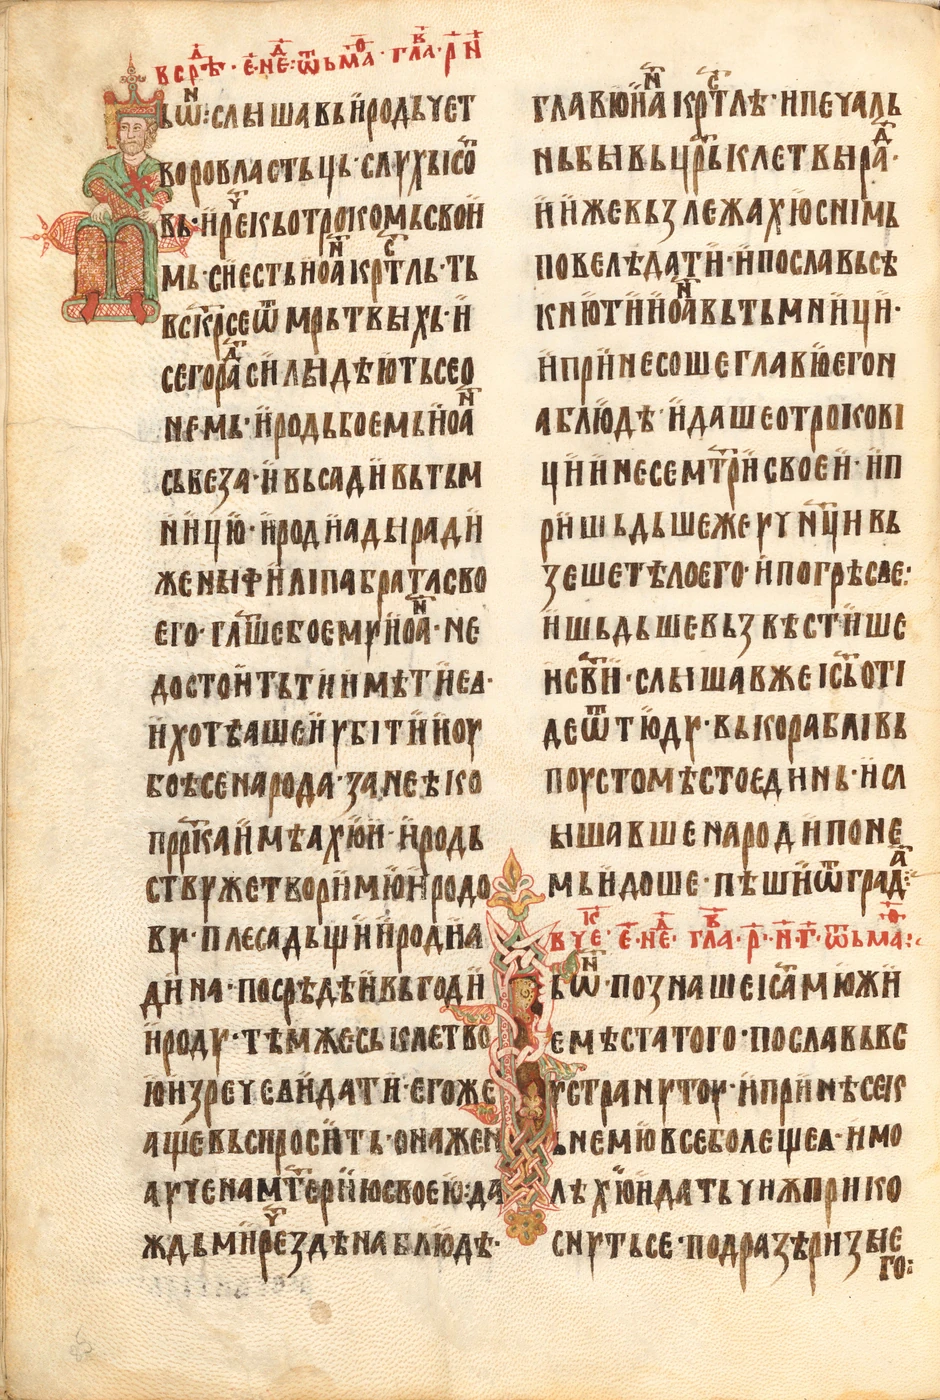 в срѣд · е · нед · ѿ мат · гла · рн
ьѡн : слыша вь иродь чет
воровластьць · слухь ісо
вь · и рече кь отрокомь свои
мь · си есть иоан крⷭтль · ть
вьскрсе ѿ мрьтвыхь · и
сего рад силы дѣють се о
немь · иродь бо емь иоан
сьвеза · и вьсади вь тьм
ницю · ирод иады ради
жены филіпа брата сво
его · глше бо ему иоан · не
достоить ти имѣти еѧ ·
и хотѣаше и убіти и ноу
боѣ се народа · зане ѣко
прркаимѣахю и · иродь
ству же творимю иродо
ву · плеса дьщи иродиа
дина · посрѣдѣ и вь годи
ироду · тѣмже сь клетво
ю изрече еи дати · егоже
аще вьспросить · она жен
аручена мтерию своею : да
ждь ми рече здѣ на блюдѣ ·
главю иоана крⷭтлѣ · и печаль
нь бывь црь клетвы рад ·
и иже вьзлежахю с німь
повелѣ дати · и пославь сѣ
кнюти иоан вь тьмници ·
и принесоше главю его н
а блюдѣ · и даше отрокові
ци и несе мтри своеи · и п
ришьдьше же учнци вь
зеше тѣло его · и погрѣсае :
и шьдьше вьзвѣстише
исви · слышав же ісь оті
де ѿтюду · вь кораблі вь
поусто мѣсто единь · и сл
ышавше народи по не
мь идоше · пѣши ѿ град :
в уе · е · не · гла · р · н · г · ѿ ма :
ьѡн · познаше іса мюжи
е мѣста того · пославь вс
у страну тоу · и принѣсе к
ь немю все болещеѧ · и мо
лѣхю и да ть чиж прико
снуть се · подразѣ ризы е
го :